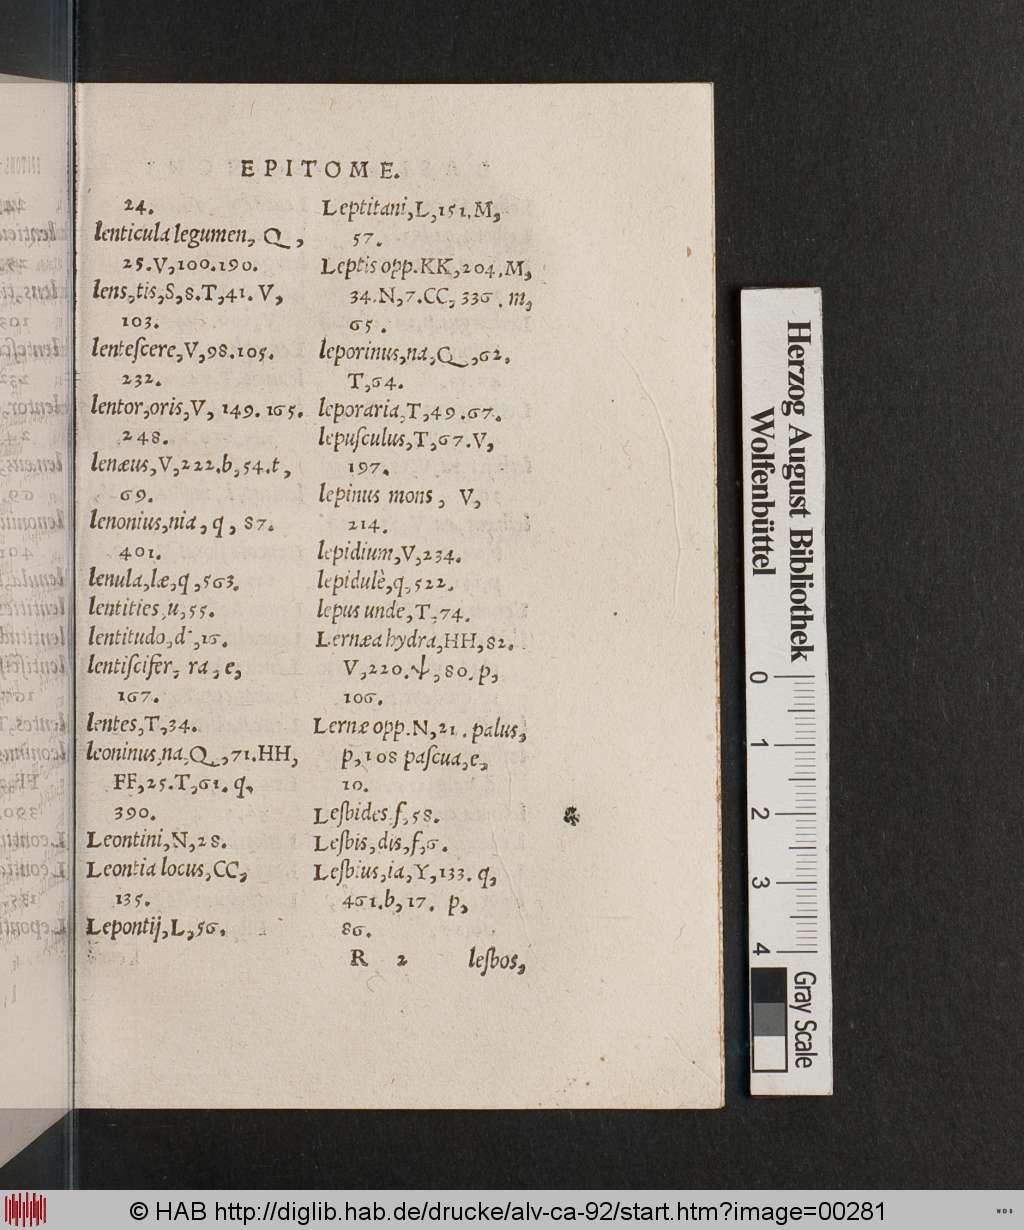 EPITOME.
24.
lenticula legumen, Q,
25.V,100.190.
lens,tis,S,8.T,41.V,
103.
lenteſcere,V,98.105.
232.
lentor,oris,V, 149.165.
248.
lenæus,V,222.b,54.t,
69.
lenonius,nia, q, 87.
401.
lenula,læ,q,563.
lentities,u,55.
lentitudo,d,16.
lentiſcifer, ra, e,
167.
lentes,T,34.
leoninus,na,Q,71.HH,
FF,25.T,61.q,
390.
Leontini,N,28.
Leontia locus,CC,
135.
Lepontij,L,56.
Leptitani,L,151.M,
57.
Leptis opp.KK,204.M,
34.N,7.CC,336.m,
65.
leporinus,na,Q,62.
T,64.
leporaria,T,49.67.
lepuſculus,T,67.V,
197.
lepinus mons, V,
214.
lepidium,V,234.
lepidulè,q,522.
lepus unde,T,74.
Lernæa hydra,HH,82.
V,220.ψ,80.p,
106.
Lernæ opp.N,21.palus,
p,108 paſcua,e,
10.
Leſbides f,58.
Leſbis,dis,f,6.
Leſbius,ia,Y,133.q,
461.b,17. p,
86.
R 2 leſbos,
Herzog August Bibliothek
Wolfenbüttel
0 1 2 3 4
Gray Scale
© HAB http://diglib.hab.de/drucke/alv-ca-92/start.htm?image=00281